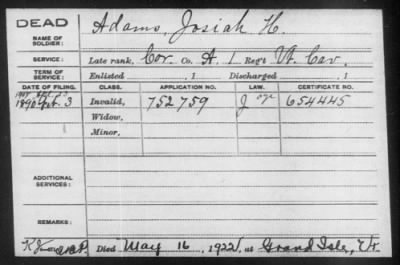 DEAD
Adams, Josiah H.
NAME OF SOLDIER:
SERVICE: Late rank, Cor. Co. A, 1 Reg't Vt. Cav.
TERM OF SERVICE: Enlisted , 1 Discharged , 1
DATE OF FILING. CLASS. APPLICATION NO. LAW. CERTIFICATE NO.
1890 3 Invalid, 752759 654445
Widow,
Minor,
ADDITIONAL SERVICES:
REMARKS:
Died May 16, 1922, at Grand Isle, Vt.